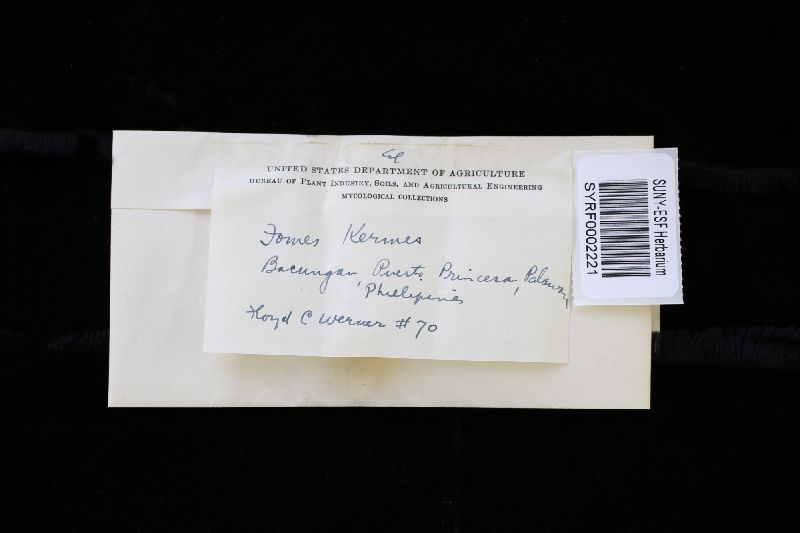 UNITED STATES DEPARTMENT OF AGRICULTURE
BUREAU OF PLANT INDUSTRY, SOILS, AND AGRICULTURAL ENGINEERING
MYCOLOGICAL COLLECTIONS
Fomes Kermes
Bacungan, Puerto Princesa, Palawan
Phillipines
Floyd C Werner # 70
SUNY-ESF Herbarium
SYRF0002221